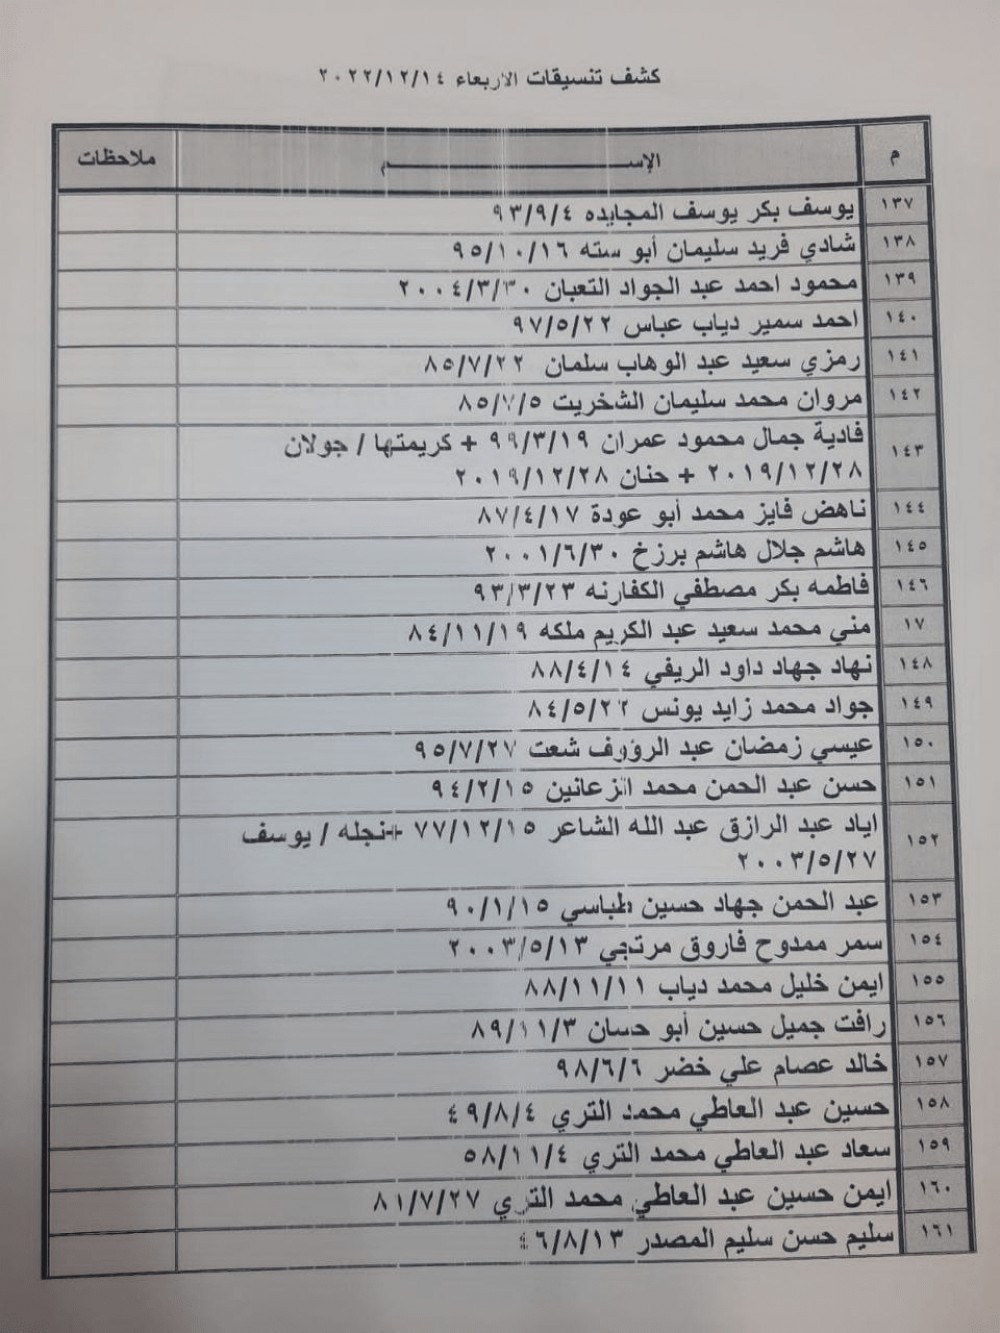 كشف تنسيقات الاربعاء ٢٠٢٢/١٢/١٤
م الإســـــــــم ملاحظات
١٣٧ يوسف بكر يوسف المجايده ٩٣/٩/٤
١٣٨ شادي فريد سليمان أبو سته ٩٥/١٠/١٦
١٣٩ محمود احمد عبد الجواد التعبان ٢٠٠٤/٣/٣٠
١٤٠ احمد سمير دياب عباس ٩٧/٥/٢٢
١٤١ رمزي سعيد عبد الوهاب سلمان ٨٥/٧/٢٢
١٤٢ مروان محمد سليمان الشخريت ٨٥/٧/٥
١٤٣ فادية جمال محمود عمران ٩٩/٣/١٩ + كريمتها / جولان
٢٠١٩/١٢/٢٨ + حنان ٢٠١٩/١٢/٢٨
١٤٤ ناهض فايز محمد أبو عودة ٨٧/٤/١٧
١٤٥ هاشم جلال هاشم برزخ ٢٠٠١/٦/٣٠
١٤٦ فاطمه بكر مصطفي الكفارنه ٩٣/٣/٢٣
١٧ مني محمد سعيد عبد الكريم ملكه ٨٤/١١/١٩
١٤٨ نهاد جهاد داود الريفي ٨٨/٤/١٤
١٤٩ جواد محمد زايد يونس ٨٤/٥/٢٢
١٥٠ عيسي زمضان عبد الرؤوف شعت ٩٥/٧/٢٧
١٥١ حسن عبد الحمن محمد الزعانين ٩٤/٢/١٥
١٥٢ اياد عبد الرازق عبد الله الشاعر ٧٧/١٢/١٥ +نجله / يوسف
٢٠٠٣/٥/٢٧
١٥٣ عبد الحمن جهاد حسين طباسي ٩٠/١/١٥
١٥٤ سمر ممدوح فاروق مرتجي ٢٠٠٣/٥/١٣
١٥٥ ايمن خليل محمد دياب ٨٨/١١/١١
١٥٦ رافت جميل حسين أبو حسان ٨٩/١١/٣
١٥٧ خالد عصام علي خضر ٩٨/٦/٦
١٥٨ حسين عبد العاطي محمد التري ٤٩/٨/٤
١٥٩ سعاد عبد العاطي محمد التري ٥٨/١١/٤
١٦٠ ايمن حسين عبد العاطي محمد التري ٨١/٧/٢٧
١٦١ سليم حسن سليم المصدر ٤٦/٨/١٣